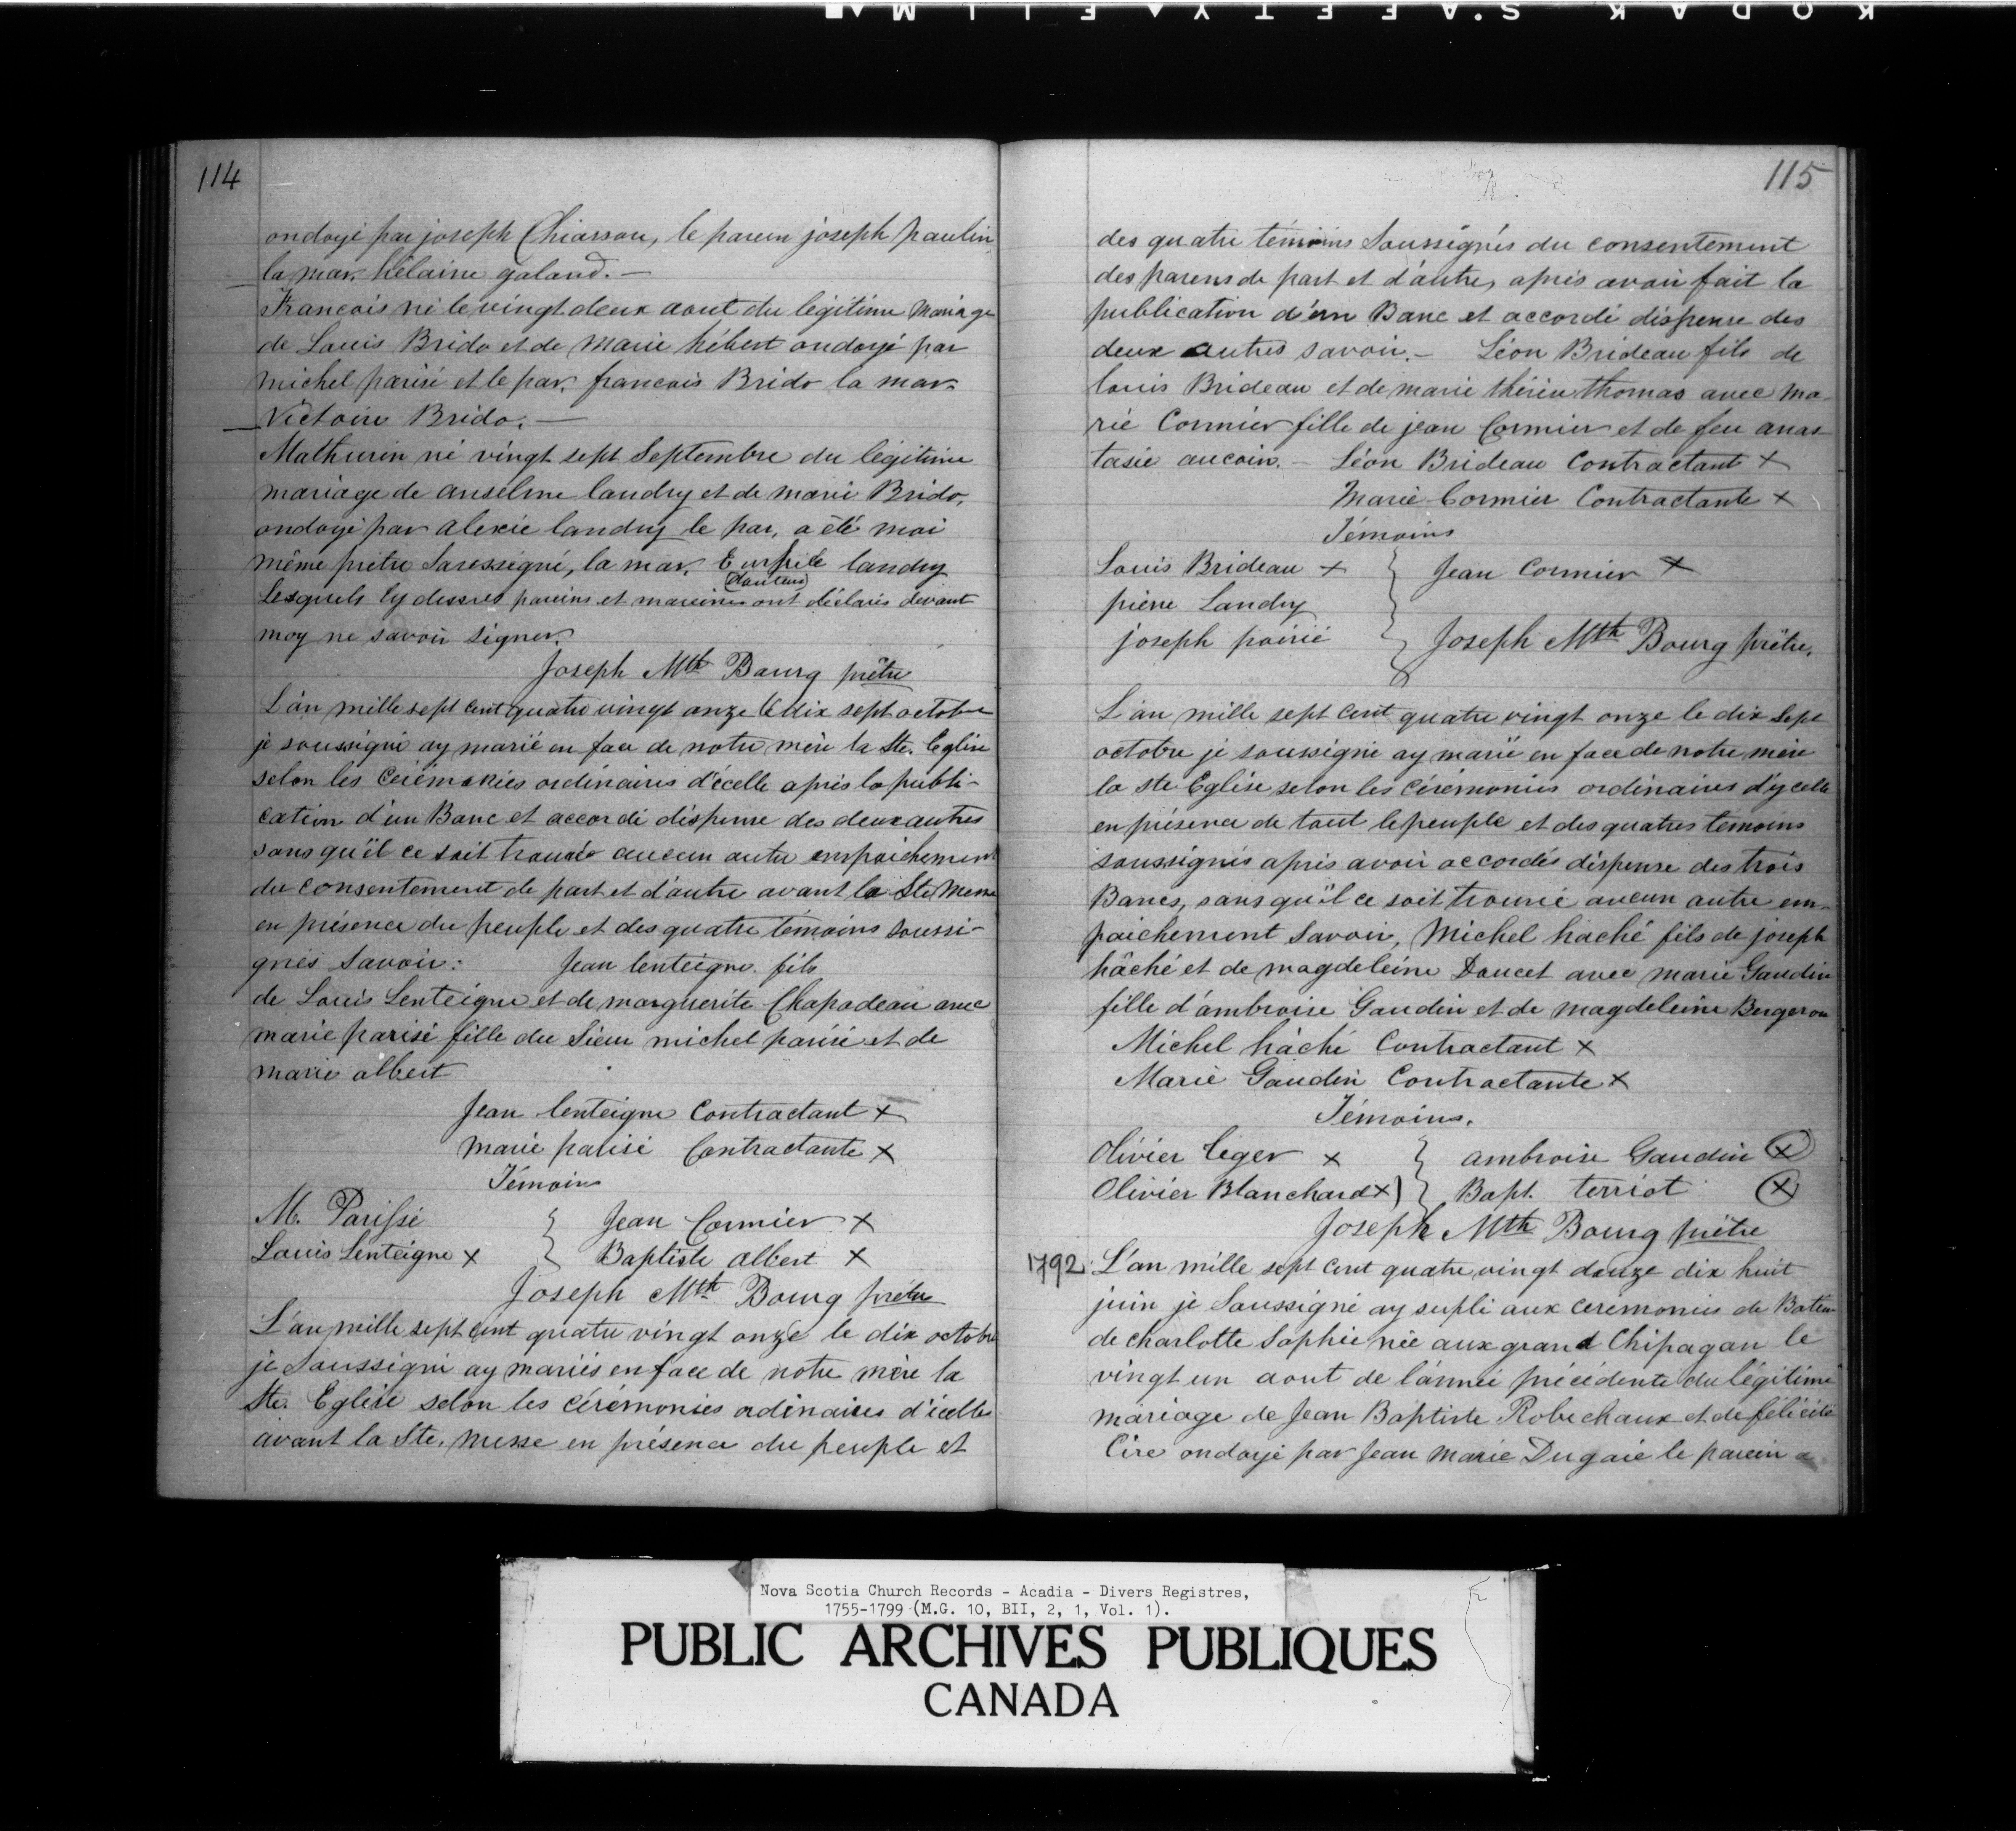 KODAK S.AFETY FILM
114
ondoyé par joseph Chiasson, le parein joseph paulin
la mar. hélaine galand. —
Francois né le vingt deux aout du légitime mariage
de Louis Brido et de Marie hébert ondoyé par
michel parisé et le par. francois Brido la mar.
Victoire Brido. —
Mathurin né vingt sept Septembre du légitime
mariage de anselme landry et de marie Brido,
ondoyé par alexie landry le par, a été moi
même prêtre Sousssigné, la mar. landry
Lesquels cy dessus pareins et mareines ont déclarés devant
moy ne savoir signer.
Joseph Mth Bourg prêtre
L'an mille sept cent quatre vingt onze le dix sept octobre
je soussigné ay marié en face de notre mère la Ste. Eglise
selon les cérémonies ordinaires d'écelle après la publi-
cation d'un Banc et accordé dispense des deux autres
sans qu'il ce soit trouvé aucun autre empaichement
du consentement de part et d'autre avant la Ste Messe
en présence du peuple et des quatre témoins soussi-
gnés savoir: Jean lenteigne fils
de Louis Lenteigne et de marguerite Chapadeau avec
marie parisé fille du Sieur michel parisé et de
marie albert
Jean lenteigne Contractant x
marie parisé Contractante x
Témoins
M. Parissé } Jean Cormier x
Louis Lenteigne x } Baptiste albert x
Joseph Mth Bourg prêtre
L'an mille sept cent quatre vingt onze le dix octobre
je Soussigné ay mariés en face de notre mère la
Ste. Eglise selon les cérémonies ordinaires d'icelle
avant la Ste. messe en présence du peuple et
115
des quatre témoins Soussignés du consentement
des parens de part et d'autre, après avoir fait la
publication d'un Banc et accordé dispense des
deux autres savoir. — Léon Brideau fils de
louis Brideau et de marie thérèse thomas avec ma-
rie Cormier fille de jean Cormier et de feu anas-
tasie aucoin. — Léon Brideau Contractant x
Marie Cormier Contractante x
Témoins
Louis Brideau x } Jean Cormier x
pierre Landry
joseph poirié } Joseph Mth Bourg prêtre.
L'an mille sept cent quatre vingt onze le dix sept
octobre je soussigné ay marié en face de notre mère
la ste Eglise selon les cérémonies ordinaires d'ycelle
en présence de tout le peuple et des quatres témoins
soussignés après avoir accordés dispense des trois
Bancs, sans qu'il ce soit trouvé aucun autre em-
paichement Savoir, Michel haché fils de joseph
hâché et de magdeleine Doucet avec marie Gaudin
fille d'ambroise Gaudin et de magdeleine Bergeron
Michel hâché Contractant x
Marie Gaudin Contractante x
Témoins.
Olivier leger x } ambroise Gaudin x
Olivier Blanchard x } Bapt. terriot x
Joseph Mth Bourg prêtre
1792 L'an mille sept cent quatre vingt douze dix huit
juin je Soussigné ay suplé aux ceremonies de Batem
de charlotte Sophie née aux grand Chipagan le
vingt un aout de l'année précédente du légitime
mariage de Jean Baptiste Robechaux et de félicité
Cire ondoyé par Jean Marie Dugaie le parein a
Nova Scotia Church Records - Acadia - Divers Registres,
1755-1799 (M.G. 10, BII, 2, 1, Vol. 1).
PUBLIC ARCHIVES PUBLIQUES
CANADA